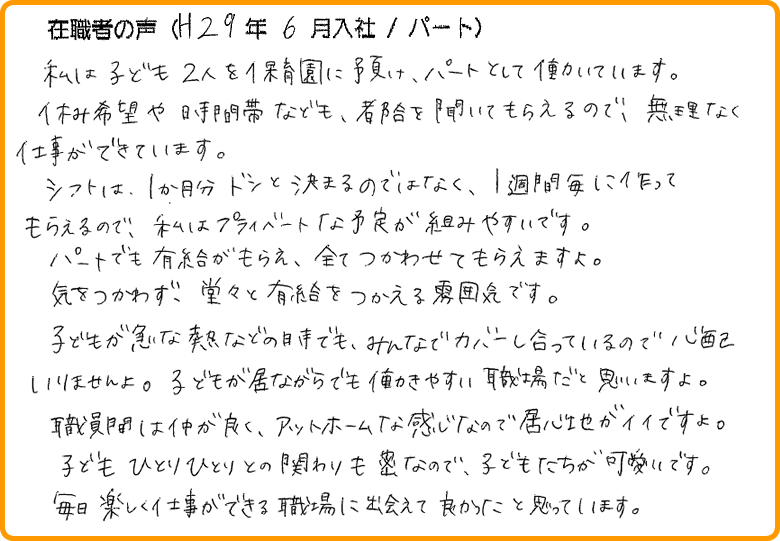 在職者の声（H29年 6月入社 / パート）
私は子ども2人を保育園に預け、パートとして働いています。
休み希望や時間帯なども、都合を聞いてもらえるので、無理なく
仕事ができています。
シフトは、1か月分ドンと決まるのではなく、1週間毎に作って
もらえるので、私はプライベートな予定が組みやすいです。
パートでも有給がもらえ、全てつかわせてもらえますよ。
気をつかわず、堂々と有給をつかえる雰囲気です。
子どもが急な熱などの時でも、みんなでカバーし合っているので心配
いりませんよ。子どもが居ながらでも働きやすい職場だと思いますよ。
職員間は仲が良く、アットホームな感じなので居心地がイイですよ。
子どもひとりひとりとの関わりも密なので、子どもたちが可愛いです。
毎日楽しく仕事ができる職場に出会えて良かったと思っています。